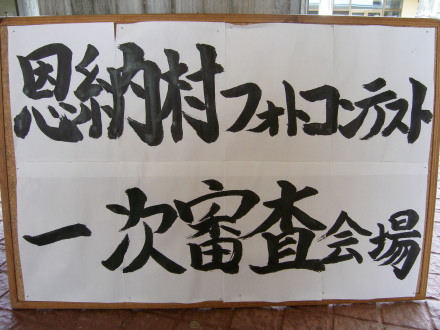 恩納村フォトコンテスト
一次審査会場